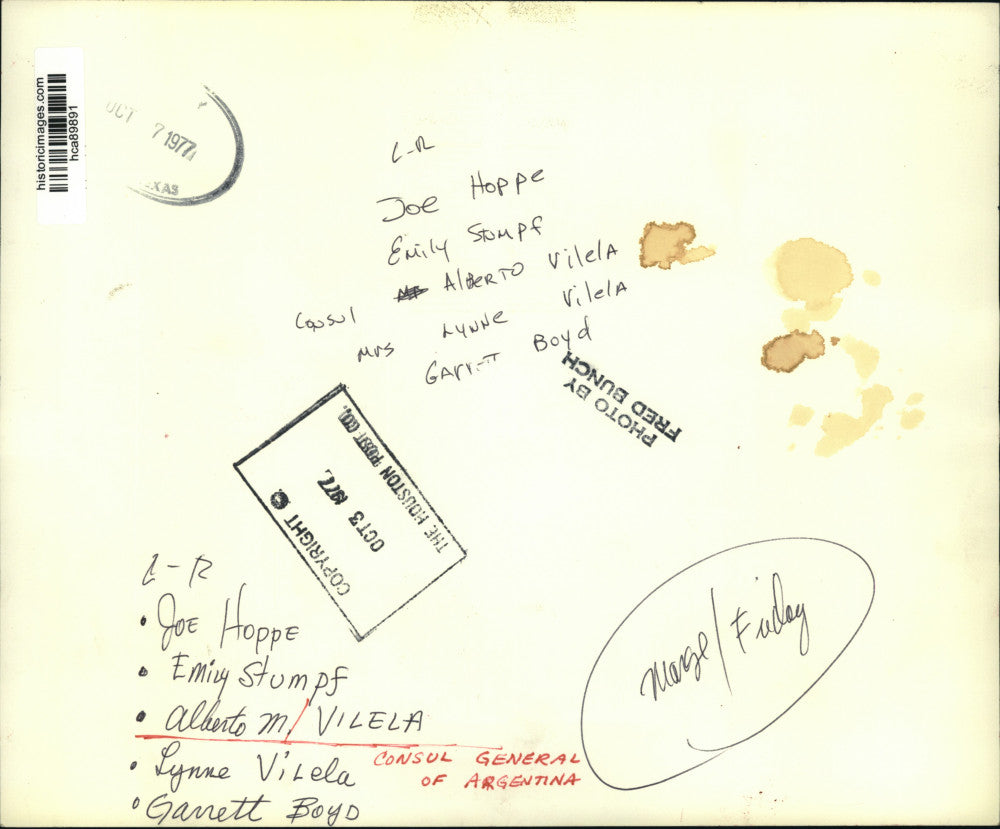 historicimages.com
hca89891
OCT 7 1977
L-R
Joe Hoppe
Emily Stumpf
Alberto Vilela
Consul
Mrs Lynne Vilela
Garrett Boyd
PHOTO BY
FRED BUNCH
THE HOUSTON POST CO.
OCT 3 1977
COPYRIGHT ©
L-R
• Joe Hoppe
• Emily Stumpf
• Alberto M. VILELA
CONSUL GENERAL
OF ARGENTINA
• Lynne Vilela
• Garrett Boyd
Marge/Friday